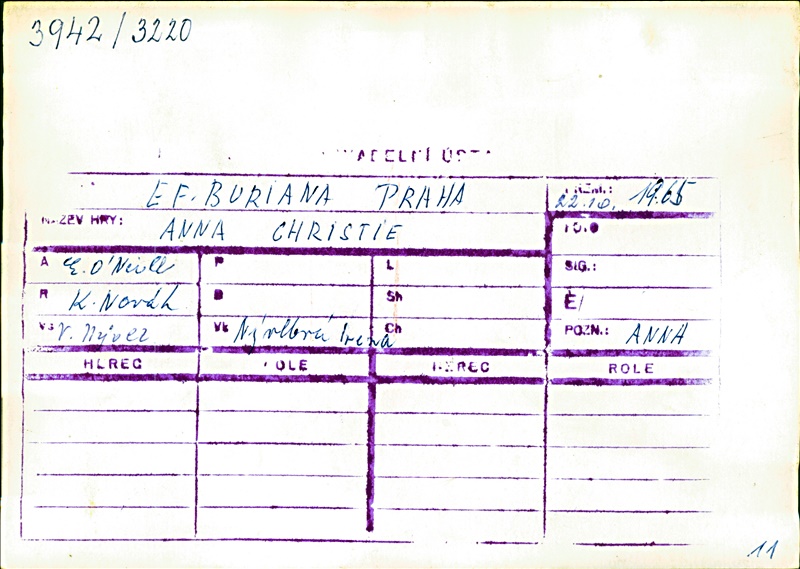 3942/3220
E F. BURIANA PRAHA
PREM.: 22.10. 1965
NÁZEV HRY: ANNA CHRISTIE
FOTO
A E. O'Neill P L SIG.:
R K. Novák D Sh Č/
Vs V. Nývlt Vk Nývltová Irena Ch POZN.: ANNA
HEREC ROLE HEREC ROLE
11